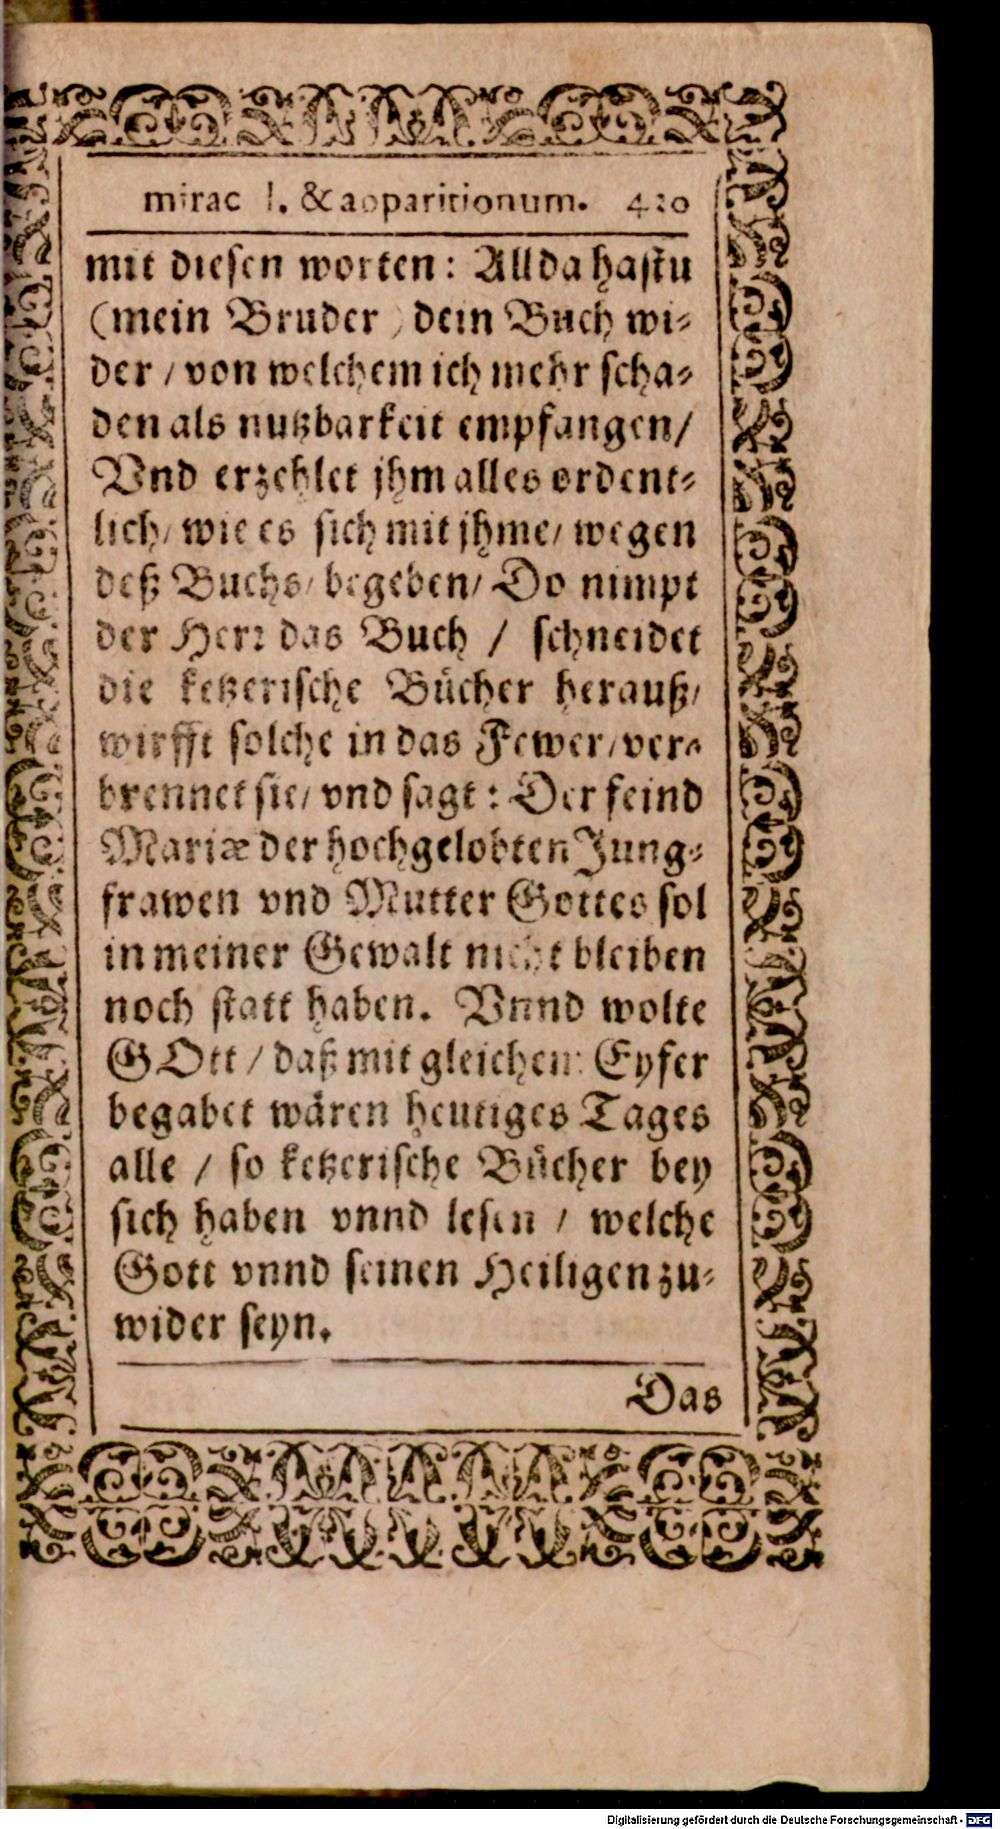 mirac l. & apparitionum. 420
mit diesen worten: Allda hastu
(mein Bruder) dein Buch wi-
der / von welchem ich mehr scha-
den als nutzbarkeit empfangen /
Vnd erzehlet jhm alles ordent-
lich / wie es sich mit jhme / wegen
deß Buchs / begeben / Do nimpt
der Herr das Buch / schneidet
die ketzerische Bücher herauß /
wirfft solche in das Fewer / ver-
brennet sie / vnd sagt: Der feind
Mariæ der hochgelobten Jung-
frawen vnd Mutter Gottes sol
in meiner Gewalt nicht bleiben
noch statt haben. Vnnd wolte
GOtt / daß mit gleichem Eyfer
begabet wären heutiges Tages
alle / so ketzerische Bücher bey
sich haben vnnd lesen / welche
Gott vnnd seinen Heiligen zu-
wider seyn.
Das
Digitalisierung gefördert durch die Deutsche Forschungsgemeinschaft - DFG